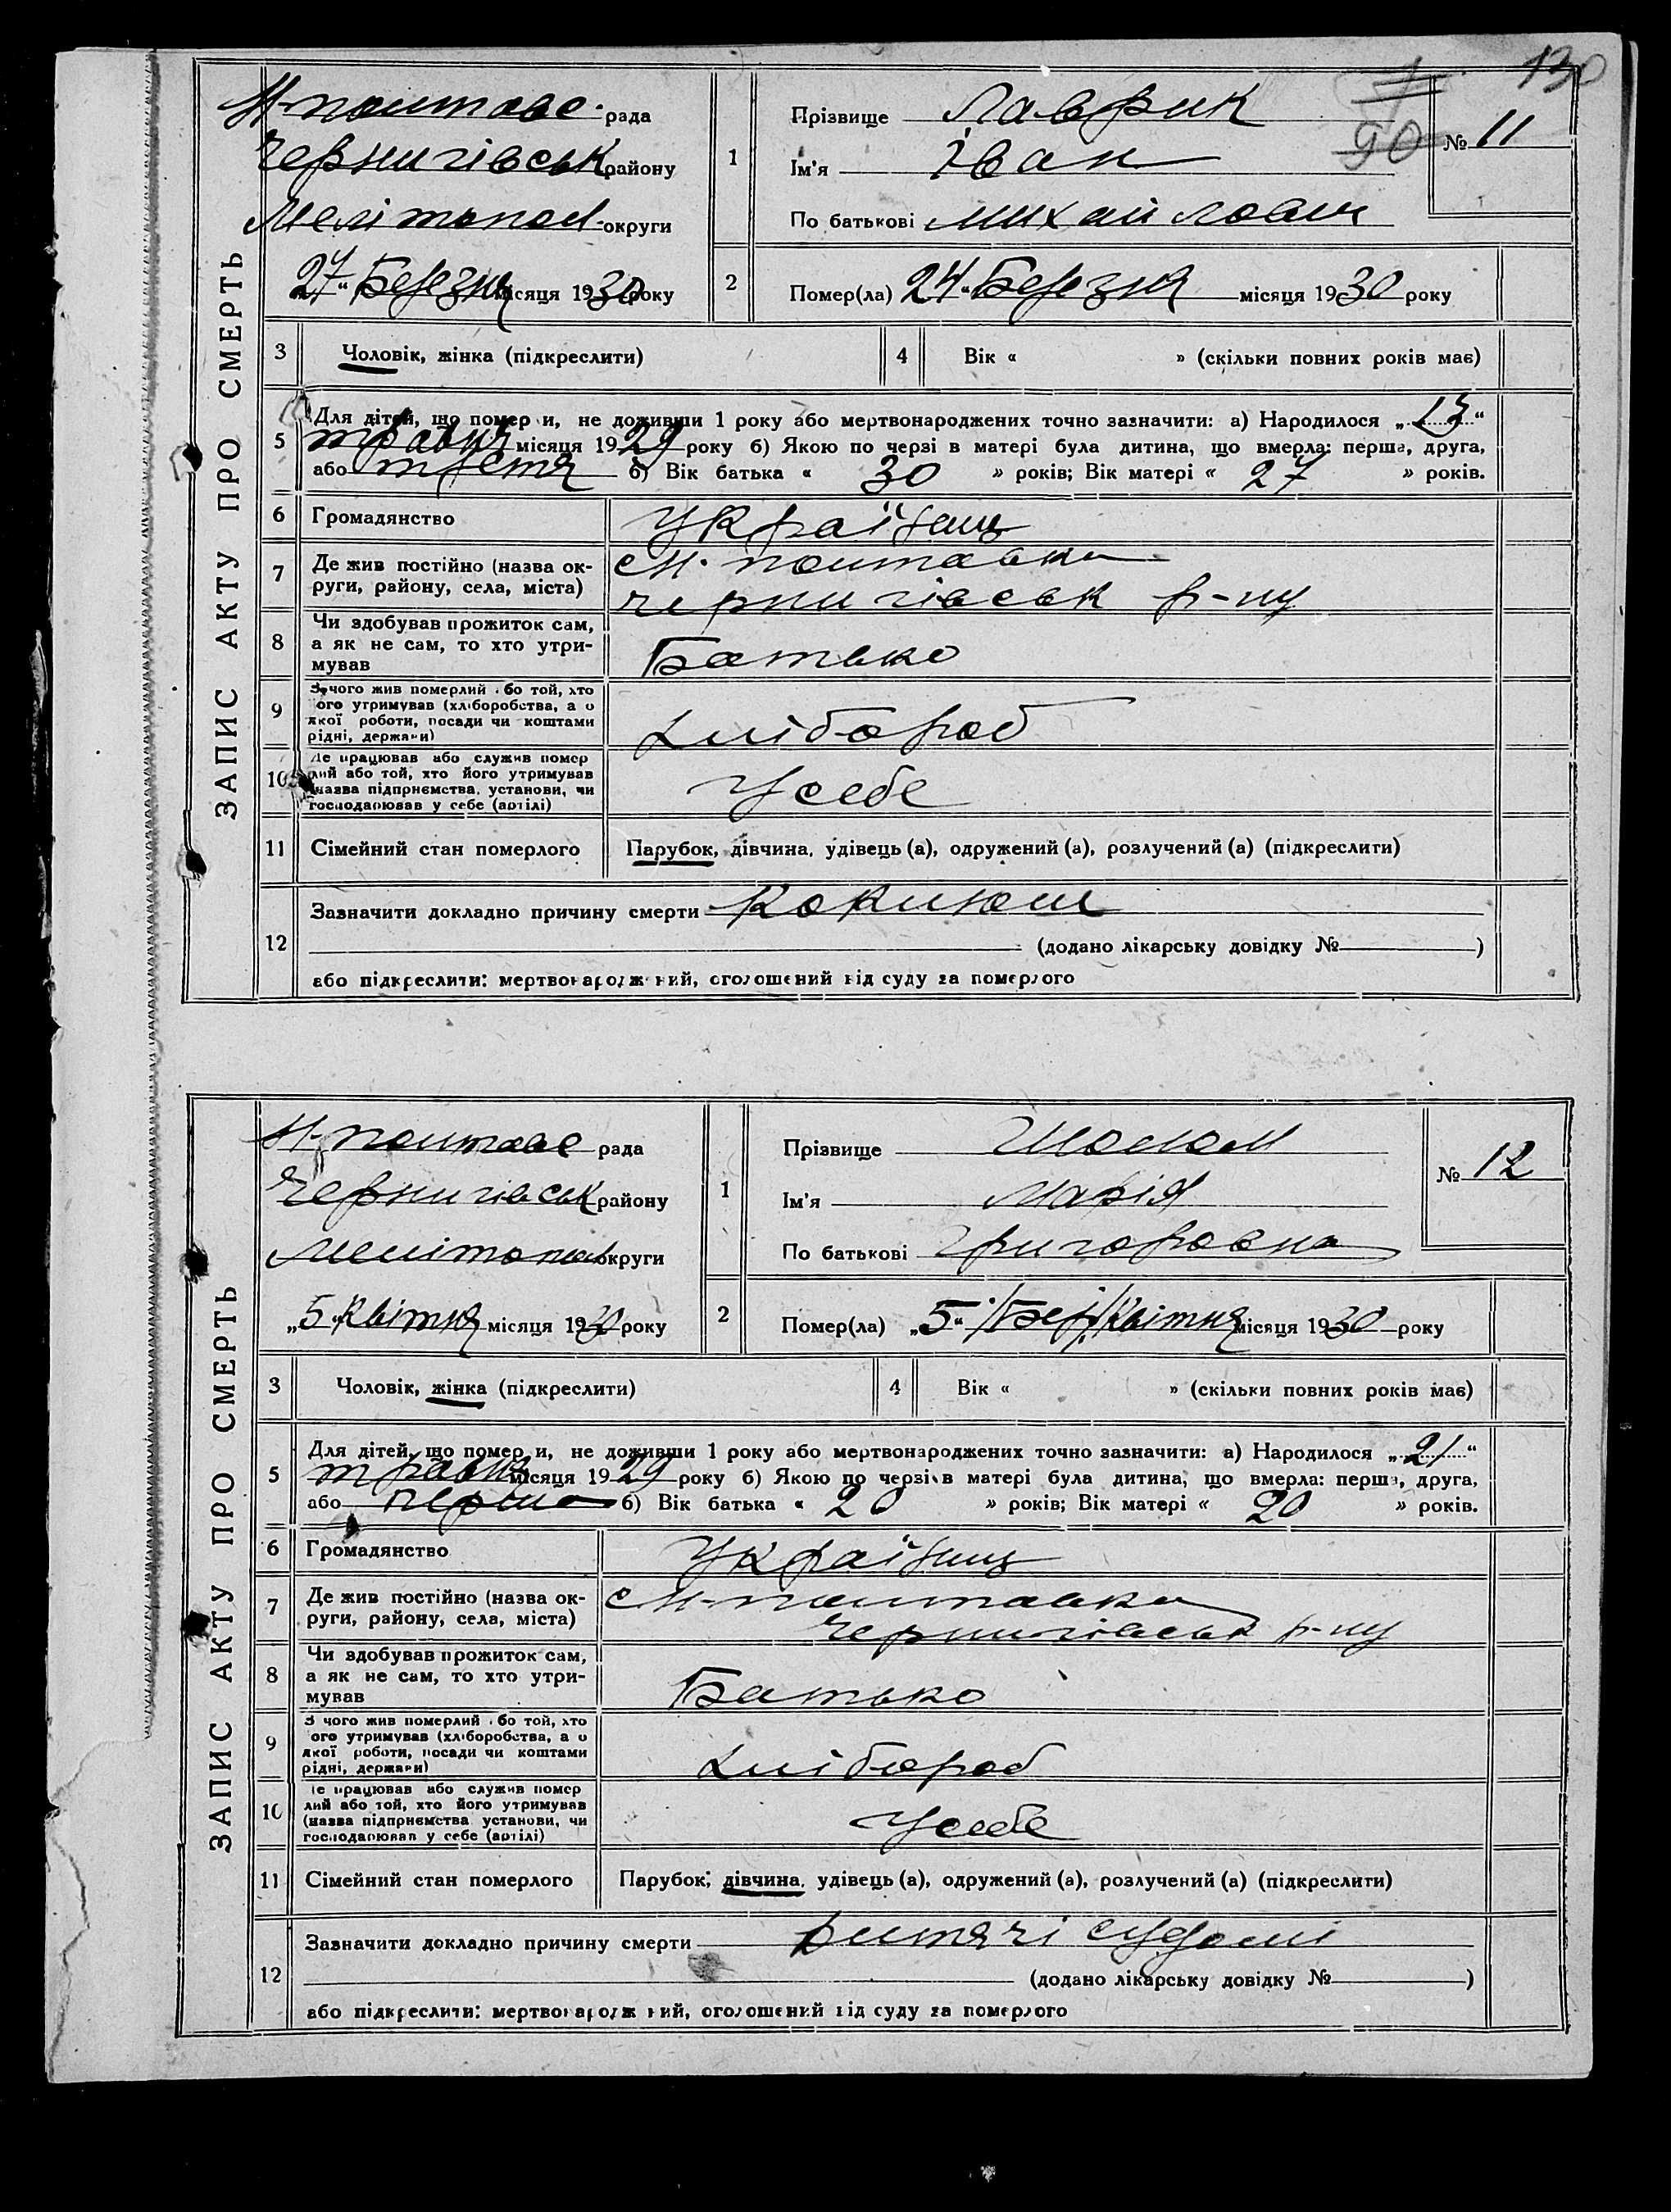 130
90
ЗАПИС АКТУ ПРО СМЕРТЬ
Н-полтавс. рада
Чернигівськ району
Мелітопол. округи
„27“ Березня місяця 1930 року
1
Прізвище Лаврик
Ім'я Іван
По батькові Михайлович
№ 11
2
Помер(ла) 24“ Березня місяця 1930 року
3 Чоловік, жінка (підкреслити)
4 Вік « » (скільки повних років має)
5
Для дітей, що помер и, не доживши 1 року або мертвонароджених точно зазначити: а) Народилося „13“
травня місяця 1929 року б) Якою по черзі в матері була дитина, що вмерла: перша, друга,
або третя б) Вік батька « 30 » років; Вік матері « 27 » років.
6 Громадянство
7 Де жив постійно (назва ок-
руги, району, села, міста)
с Н. полтавка
Чернигівськ р-ну
8 Чи здобував прожиток сам,
а як не сам, то хто утри-
мував
Батько
9 З чого жив померлий або той, хто
ого утримував (хліборобства, а о
якої роботи, посади чи коштами
рідні, держави)
Хлібороб
10 Де працював або служив помер
лий або той, хто його утримував
(назва підприємства, установи, чи
господарював у себе (артілі)
У себе
11 Сімейний стан померлого Парубок, дівчина, удівець (а), одружений (а), розлучений (а) (підкреслити)
12
Зазначити докладно причину смерти Коклюш
(додано лікарську довідку № )
або підкреслити: мертвонароджений, оголошений від суду за померлого
ЗАПИС АКТУ ПРО СМЕРТЬ
Н-полтавс рада
Чернигівськ району
Мелітопол округи
„5“ Квітня місяця 1930 року
1
Прізвище
Ім'я Марія
По батькові Григоровна
№ 12
2
Помер(ла) „5“ /Бер/ Квітня місяця 1930 року
3 Чоловік, жінка (підкреслити)
4 Вік « » (скільки повних років має)
5
Для дітей, що помер и, не доживши 1 року або мертвонароджених точно зазначити: а) Народилося „21“
травня місяця 1929 року б) Якою по черзі в матері була дитина, що вмерла: перша, друга,
або перша б) Вік батька « 20 » років; Вік матері « 20 » років.
6 Громадянство
7 Де жив постійно (назва ок-
руги, району, села, міста)
с Н-полтавка
Чернигівськ р-ну
8 Чи здобував прожиток сам,
а як не сам, то хто утри-
мував
Батько
9 З чого жив померлий або той, хто
ого утримував (хліборобства, а о
якої роботи, посади чи коштами
рідні, держави)
Хлібороб
10 Де працював або служив помер
лий або той, хто його утримував
(назва підприємства установи, чи
господарював у себе (артілі)
У себе
11 Сімейний стан померлого Парубок, дівчина, удівець (а), одружений (а), розлучений (а) (підкреслити)
12
Зазначити докладно причину смерти Дитячі судомі
(додано лікарську довідку № )
або підкреслити: мертвонароджений, оголошений від суду за померлого